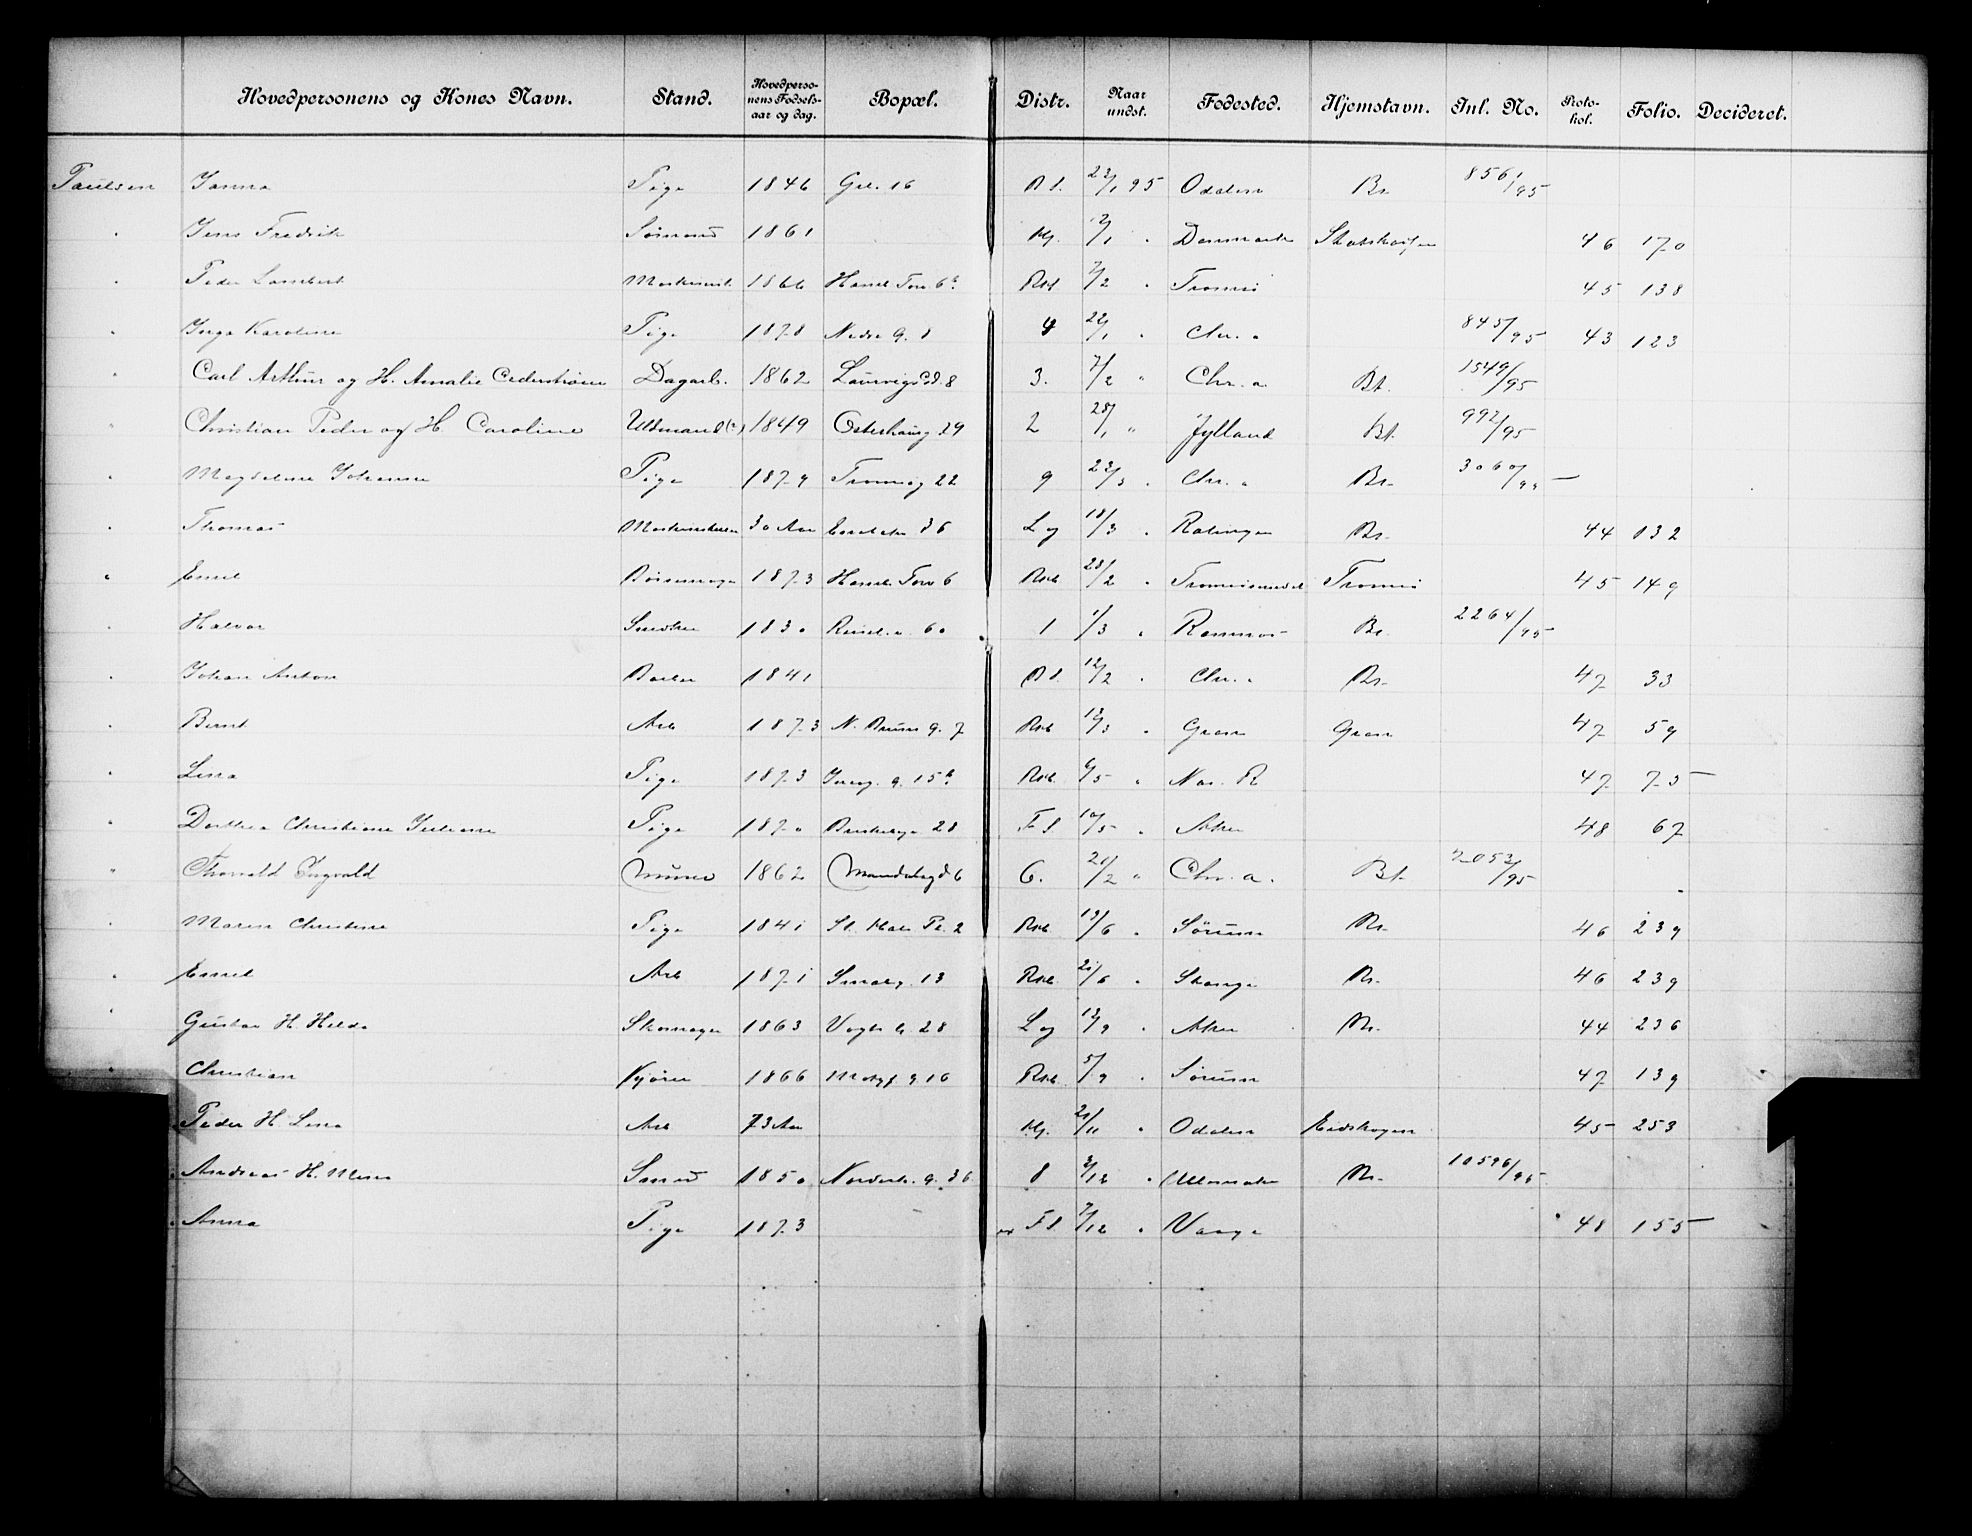 Hovedpersonens og Kones Navn. Stand. Hovedpersonens Fødselsaar og dag. Bopæl. Distr. Naar undst. Fødested. Hjemstavn. Inl. No. Protokol. Folio. Decideret.
Paulsen Janna Pige 1846 16 22/1 95 Odalen Br. 8561/95
" Jens Fredrik Sømand 1861 Hj. " Danmark 46 170
" Peder Lambert 1866 Torv 6 7/2 " Tromsø 45 138
" Inga Karoline Pige 1878 Nedre g. 8 4 22/1 " Chr.a 845/95 43 123
" Carl Arthur og H. Amalie Cederstrøm Dagarb. 1862 Laurvigsgd. 8 3. 7/2 " Chr.a Bt. 1549/95
" Christian Peder og H. Caroline Uldmand (?) 1849 Osterhausg 29 2 28/1 " Jylland Bt. 992/95
" Magdalene Johanne Pige 1879 Tromsøg 22 9 22/3 " Chr.a Br. 3060/95
" Thomas 30 Aar 36 Lg 18/3 " Br. 44 132
" Emil 1873 Torv 6 28/2 " Tromøisundet Tromø 45 149
" Halvor Snedker 1830 60 1 1/3 " Br. 2264/95
" Johan Anton 1841 12/2 " Chr.a Br. 47 33
" Bernt Arb 1873 N. g. 7 13/3 " Gran Gran 47 59
" Lina Pige 1873 g. 15 6/5 " 47 75
" Dorthea Christiane Juliane Pige 1870 28 Fl 10/5 " Aker 48 67
" Thorvald Ingvald Murer 1862 Mandalsgd 6 6. 21/2 " Chr.a. Bt. 2053/95
" Maren Christine Pige 1841 St. Hal. Pl. 2 19/6 " Sørum Br. 46 239
" Emil Arb 1871 Smalg. 13 21/6 " Stange Br. 46 239
" Gustav H. Hilda Skomager 1863 Vogts g. 28 Lg 12/9 " Aker Br. 44 236
" Christian Kjører 1866 g. 16 5/9 " Sørum 47 139
" Peder H. Lina Arb 73 Aar Hj. 21/11 " Odalen Eidskogen 45 253
" Andreas H. Mina Smed 1850 Norderh. g. 36 8 3/12 " Ullensaker Br. 10596/95
" Anna Pige 1873 Fl 7/12 " Vaage 48 155